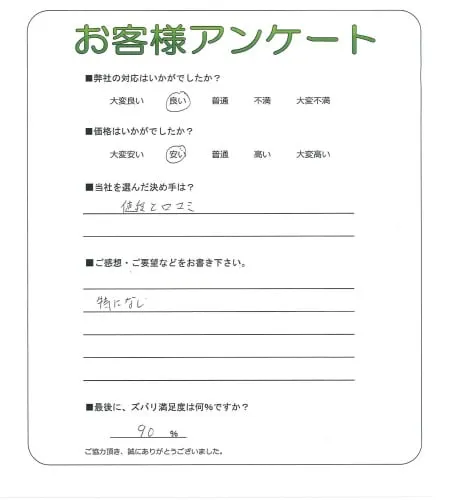 お客様アンケート
■弊社の対応はいかがでしたか？
大変良い 良い 普通 不満 大変不満
■価格はいかがでしたか？
大変安い 安い 普通 高い 大変高い
■当社を選んだ決め手は？
値段と口コミ
■ご感想・ご要望などをお書き下さい。
特になし
■最後に、ズバリ満足度は何%ですか？
90 %
ご協力頂き、誠にありがとうございました。